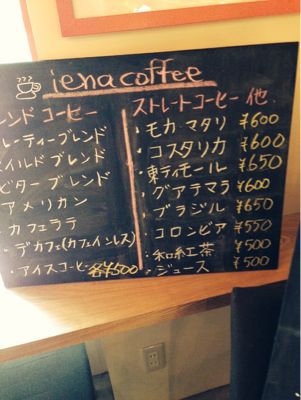 iena coffee
ンド コーヒー
レーティーブレンド
マイルドブレンド
ビターブレンド
アメリカン
・カフェラテ
・デカフェ(カフェインレス)
・アイスコーヒー 各¥500
ストレートコーヒー 他
・モカ・マタリ ¥600
・コスタリカ ¥600
・東ティモール ¥650
・グアテマラ ¥600
・ブラジル ¥650
・コロンビア ¥550
・和紅茶 ¥500
・ジュース ¥500